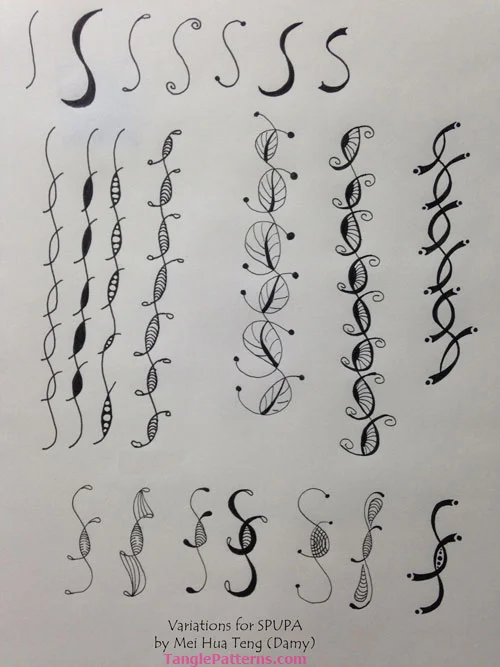 Variations for SPUPA
by Mei Hua Teng (Damy)
TanglePatterns.com